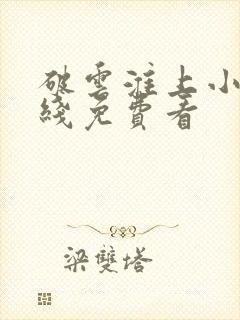 破雲淮上小
綫免費看
梁雙塔